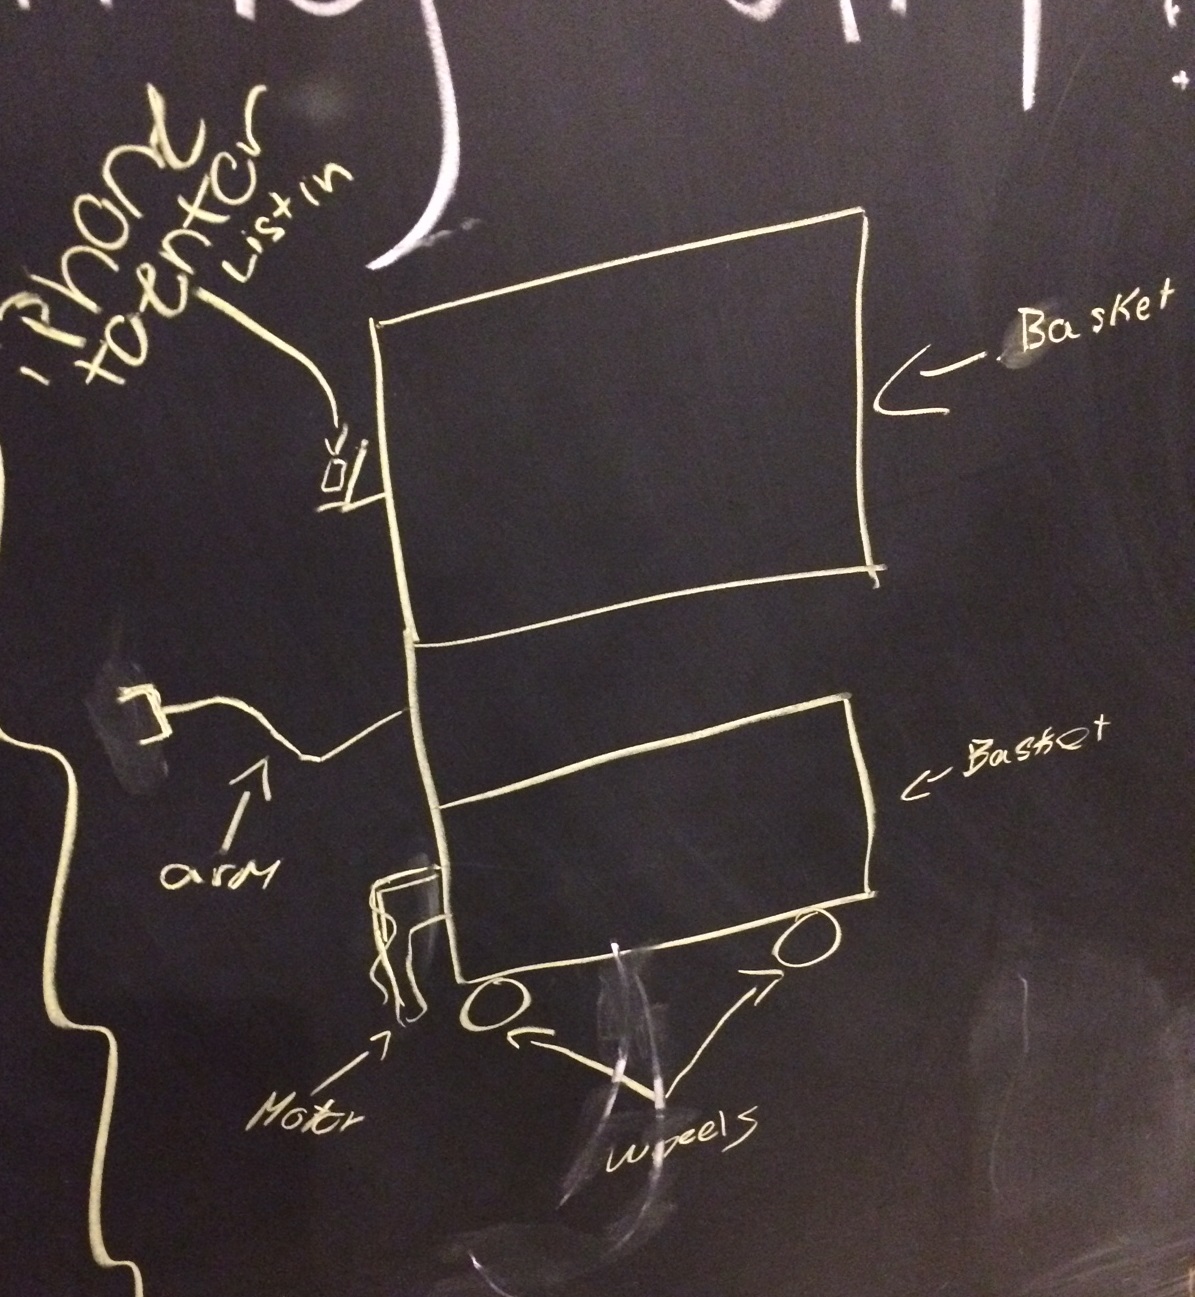 iPhone
to enter
List in
Basket
Basket
arm
Motor
wheels